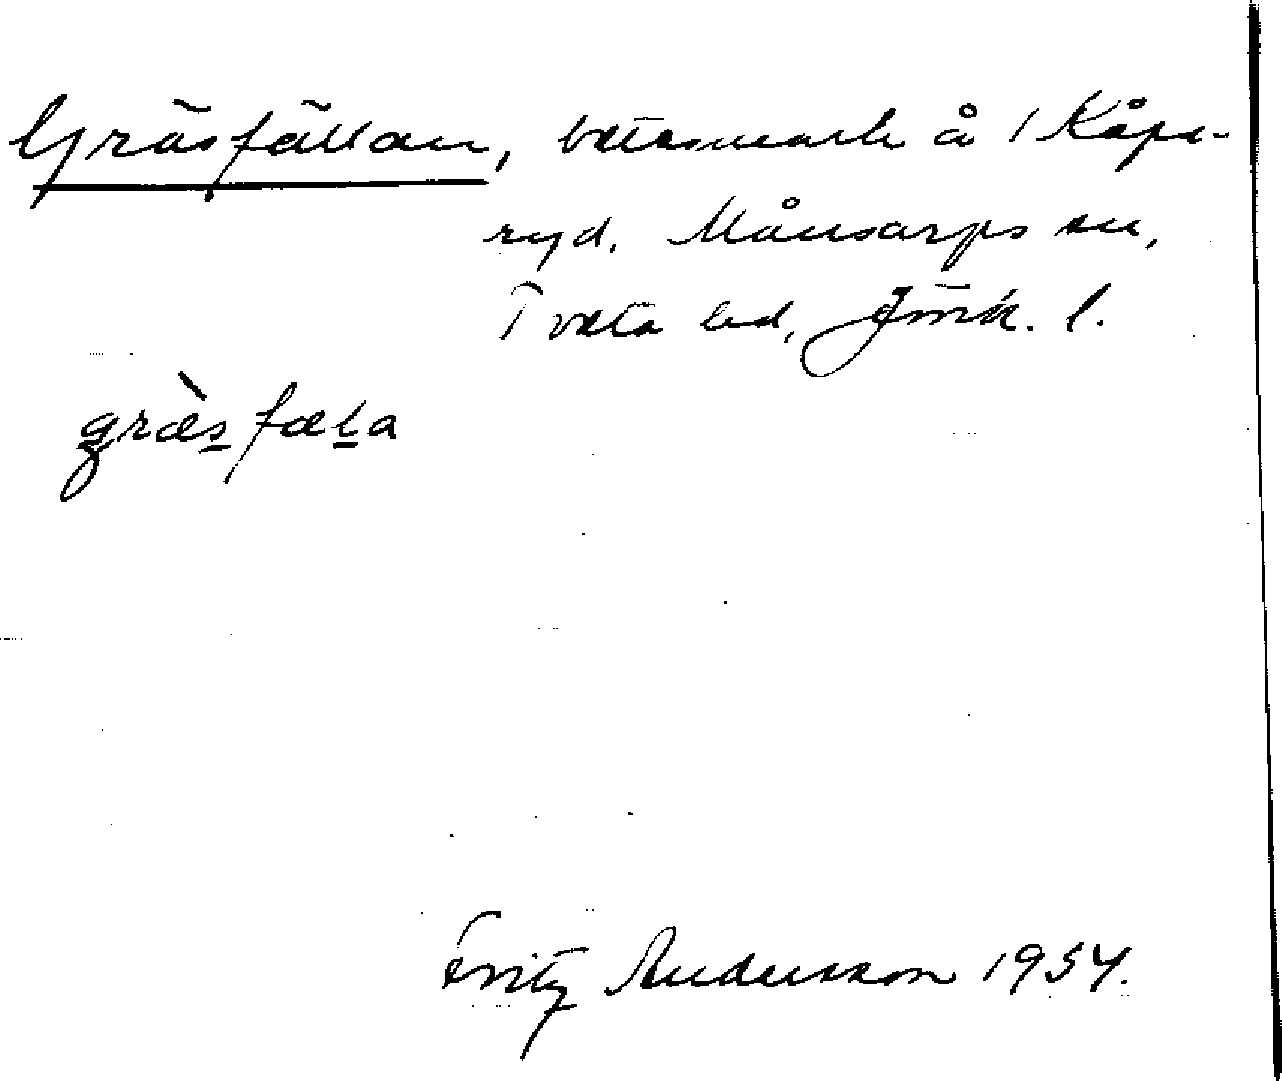 Gräsfällan, betesmark å 1 Kåpe-
ryd. Månsarps sn,
Tveta hd, Jönk. l.
græ̀sfæla
Fritz Andersson 1954.